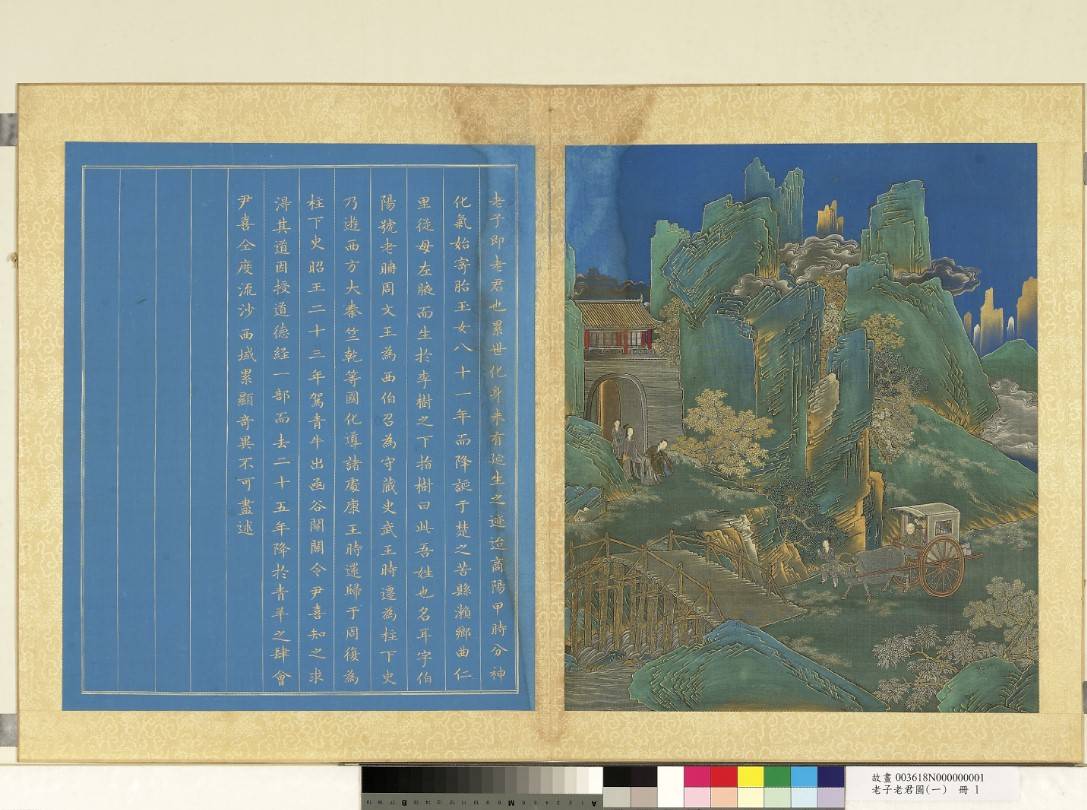 老子即老君也累世化身未有誕生之迹迨商陽甲時分神
化氣始寄胎玉女八十一年而降誕于楚之苦縣瀨鄉曲仁
里從母左腋而生於李樹之下指樹曰此吾姓也名耳字伯
陽號老聃周文王為西伯召為守藏史武王時遷為柱下史
乃遊西方大秦竺乾等國化導諸處康王時還歸于周復為
柱下史昭王二十三年駕青牛出函谷關關令尹喜知之求
得其道因授道德經一部而去二十五年降於青羊之肆會
尹喜仝度流沙西域累顯奇異不可盡述
故畫 003618N000000001
老子老君圖(一) 冊 1